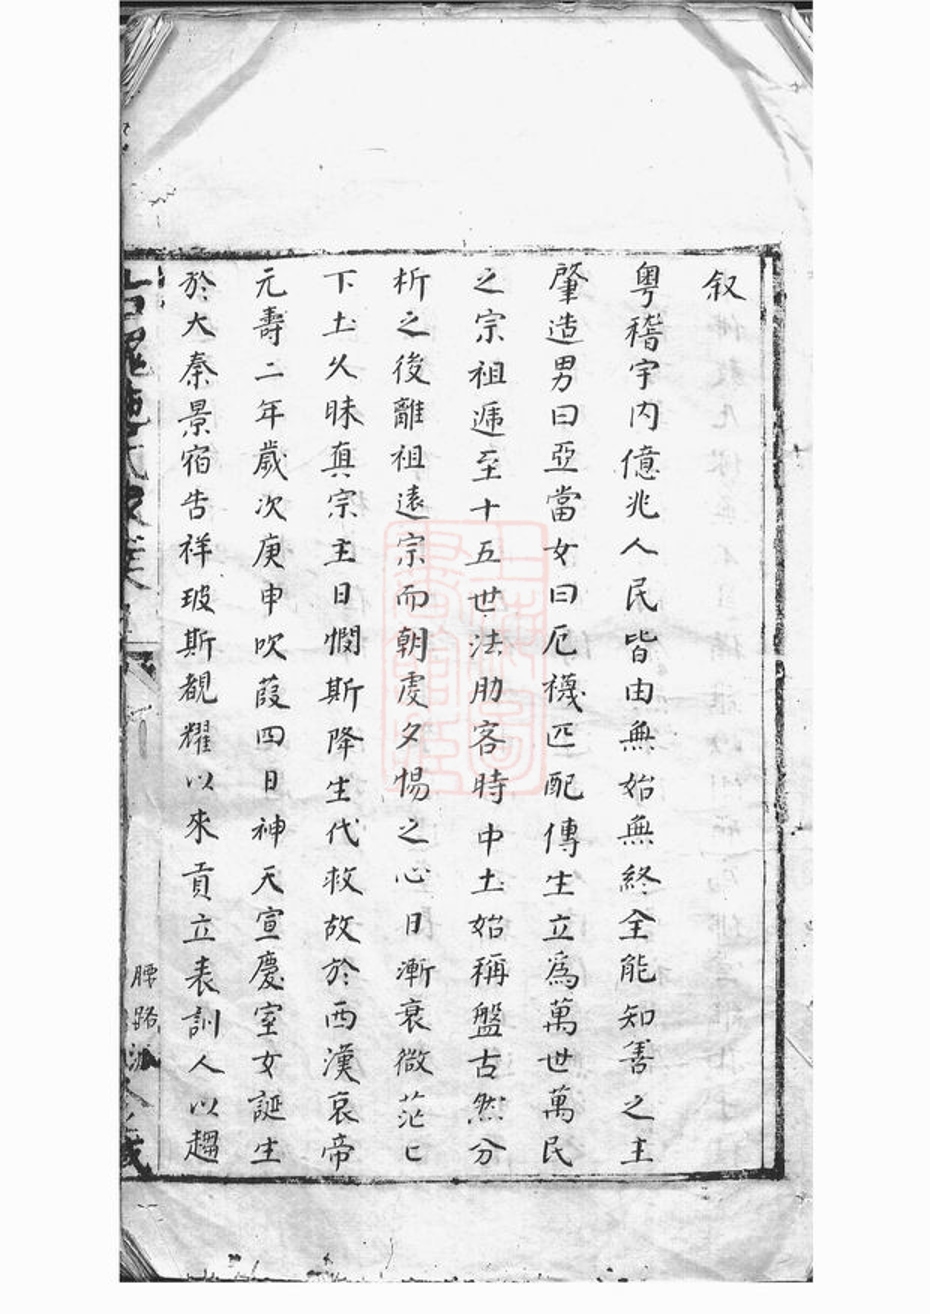 叙
粤稽宇内億兆人民皆由無始無終全能知善之主
肇造男曰亞當女曰厄襪匹配傳生立爲萬世萬民
之宗祖遞至十五世法肋客時中土始稱盤古然分
析之後離祖遠宗而朝虔夕惕之心日漸衰微茫〻
下土久昧真宗主日憫斯降生代救故於西漢哀帝
元壽二年歲次庚申吹葭四日神天宣慶室女誕生
於大秦景宿告祥玻斯覩耀以來貢立表訓人以趨
腰路派